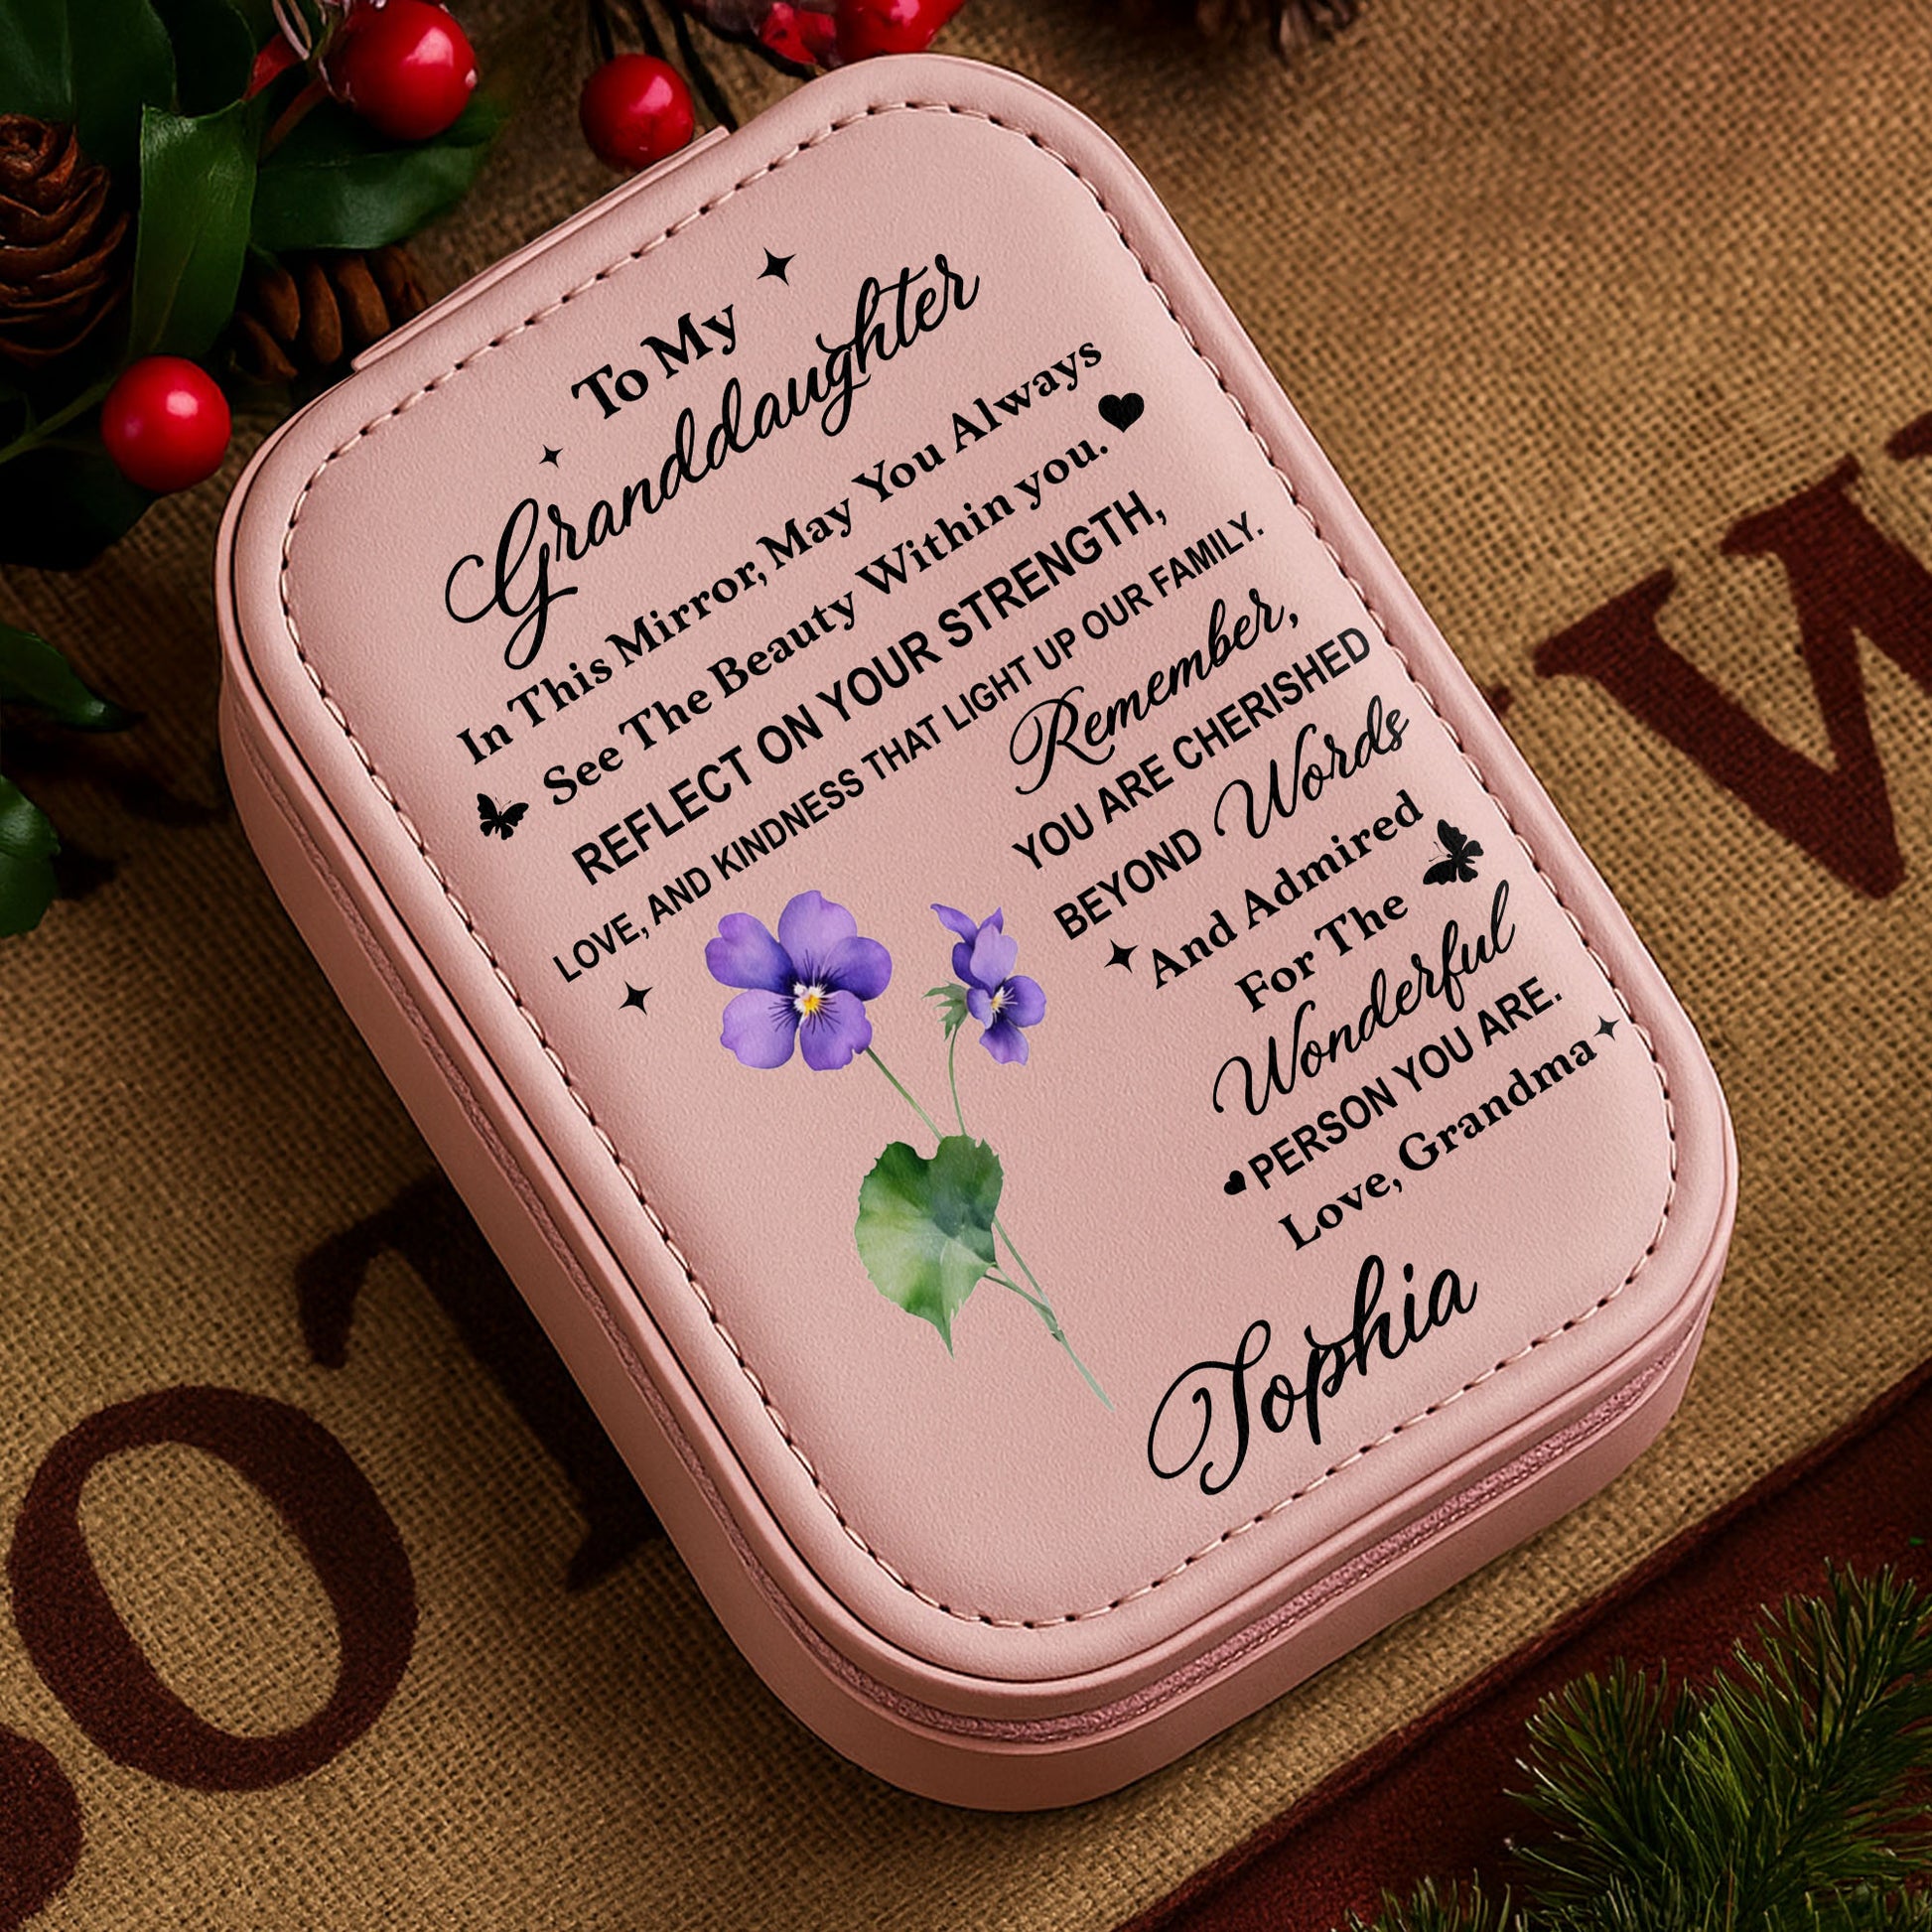 To My
Granddaughter
In This Mirror, May You Always
See The Beauty Within you.
REFLECT ON YOUR STRENGTH,
LOVE, AND KINDNESS THAT LIGHT UP OUR FAMILY.
Remember,
YOU ARE CHERISHED
BEYOND Words
And Admired
For The
Wonderful
PERSON YOU ARE.
Love, Grandma
Sophia